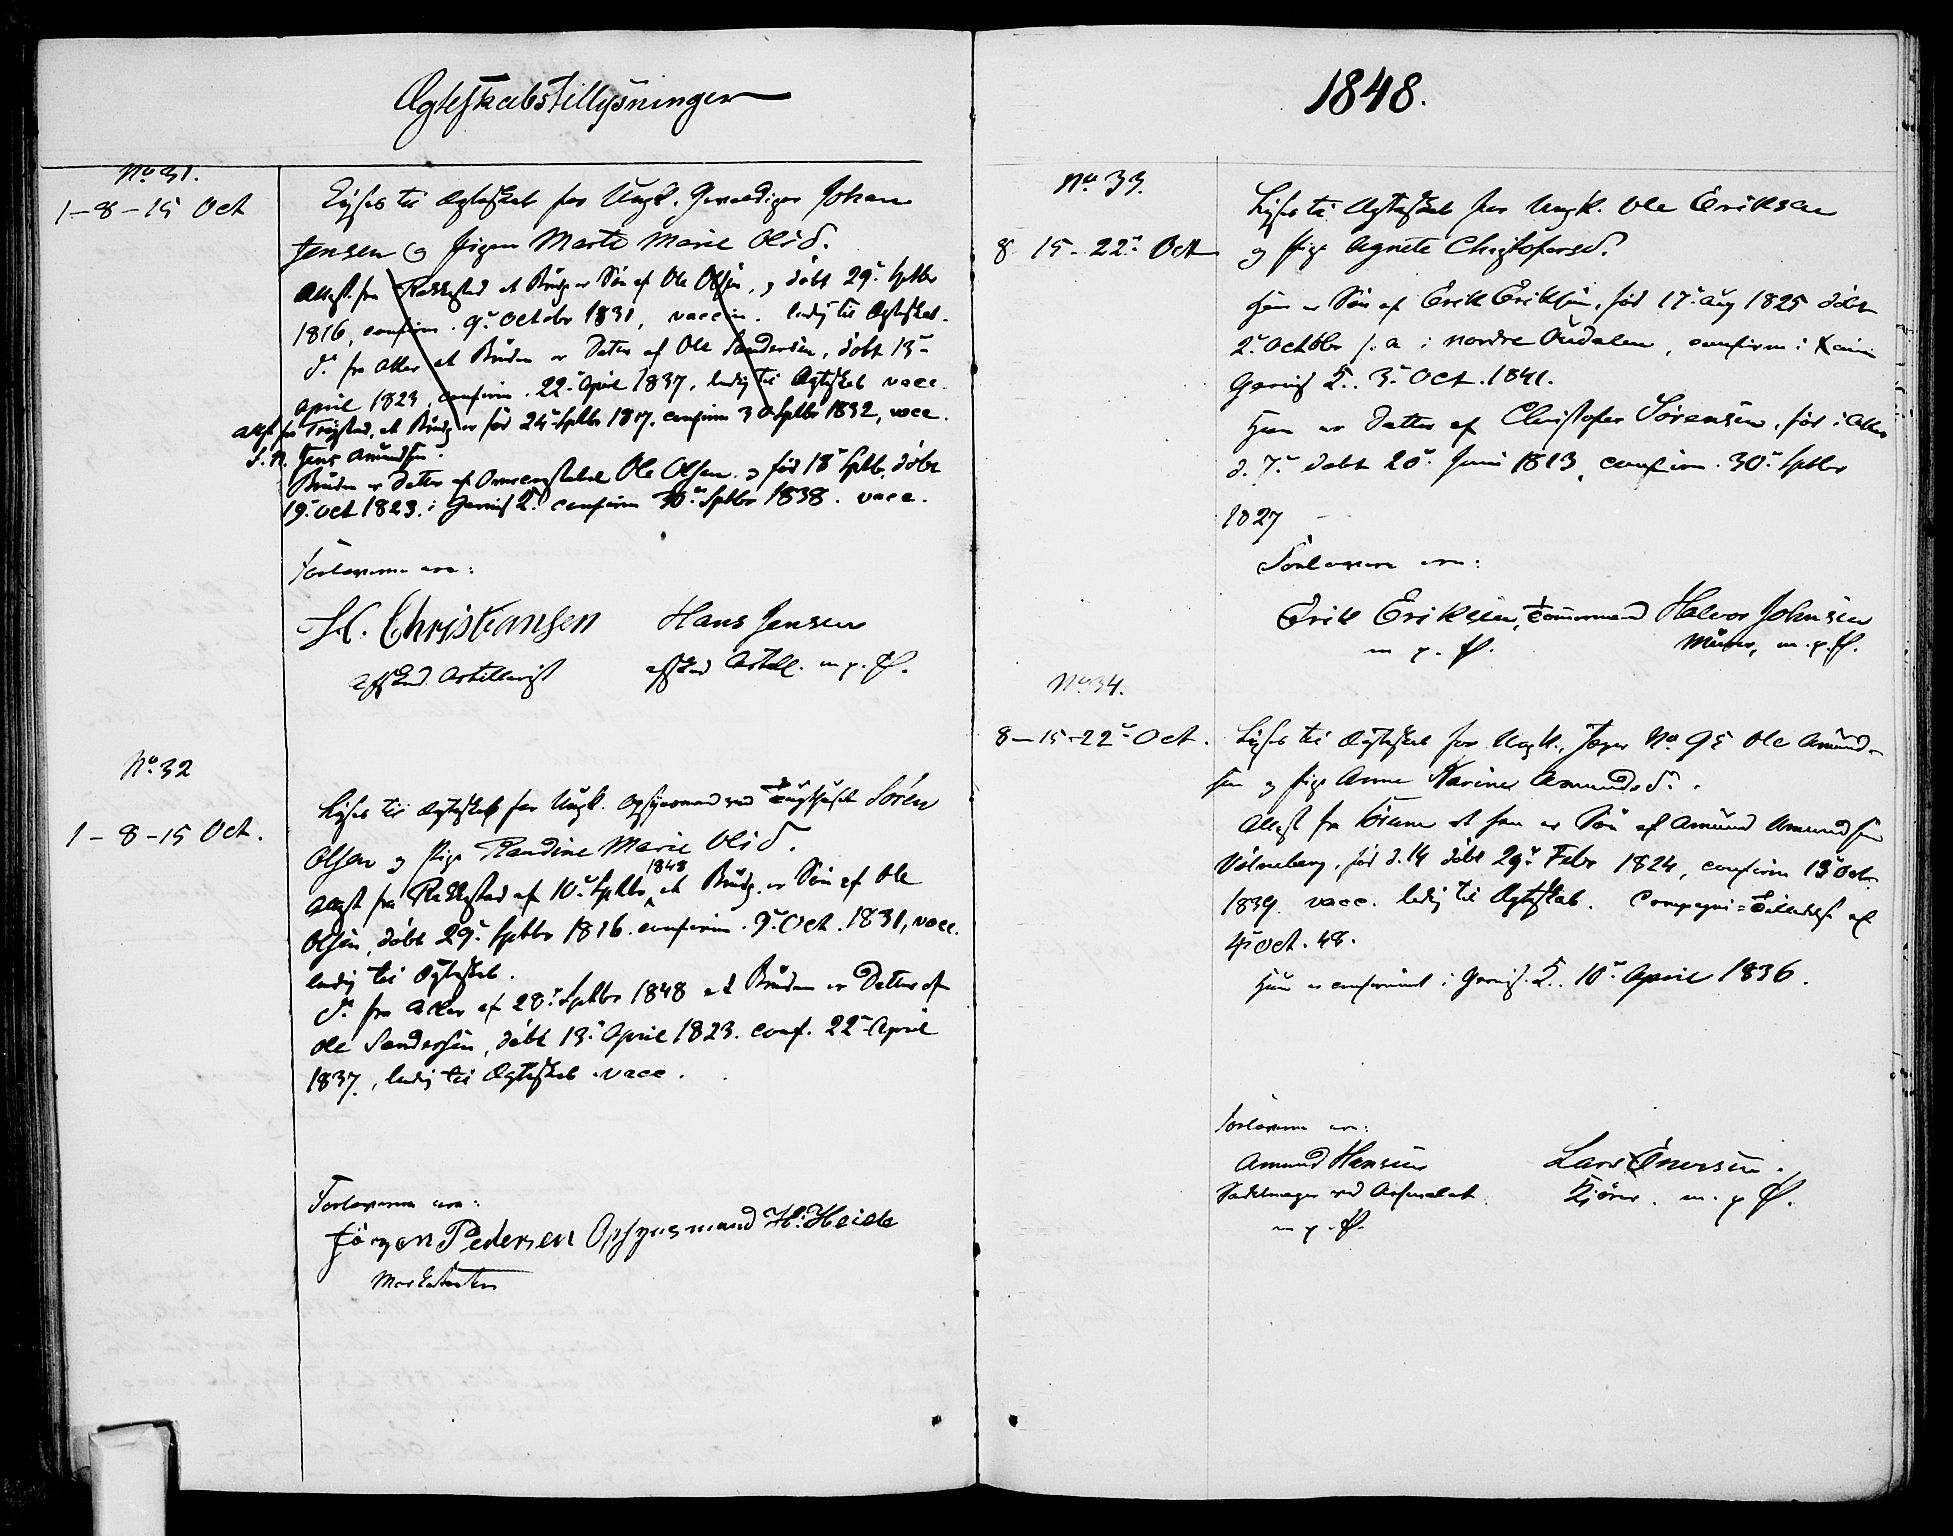 Ægteskabstillysninger
No 31.
1-8-15 Oct
Lyses til Ægteskab for Ungk. Gevaldiger Johan
Jensen og Pigen Marte Marie Olsd.
Attest fra Rakkestad at Brudg. er Søn af Ole Olsen, døbt 29. Septbr
1816, confirm. 9. Octobr 1831, vaccin. ledig til Ægteskab.
Do fra Aker at Bruden er Datter af Ole Sandersen, døbt 13.
April 1823, confirm. 22. April 1837, ledig til Ægteskab vacc.
Attest fra Trøgstad, at Brudg. er før 24. Septbr 1817. confirm 30 Septbr 1832, vacc.
S. A. Jens Amundsen.
Bruden er Datter af Ole Olsen. født 18. Septb. døbt
19. Oct 1823. i Garnis. confirm 30. Septbr 1838. vacc.
Forloverne ere:
H. Christiansen Hans Jensen
afsked Artillerist afsked Artill. m. p. P.
No. 32
1-8-15 Oct.
Lyses til Ægteskab for Ungk. Opsynsmand ved Tugthuset Søren
Olsen og Pige Randine Marie Olsd.
Attest fra Rakkestad af 10. Septbr 1848 at Brudg. er Søn af Ole
Olsen, døbt 29. Septbr 1816. confirm. 9. Oct. 1831, vacc.
ledig til Ægteskab.
Do fra Aker af 28. Septbr 1848 at Bruden er Datter af
Ole Sandersen, døbt 13. April 1823. conf. 22. April
1837, ledig til Ægteskab. vacc.
Forloverne ere:
Jörgen Pedersen Opsynsmand H. Heide
Marketenter
1848.
No. 33.
8 15-22. Oct
Lyses til Ægteskab for Ungk. Ole Eriksen
og Pige Agnete Christophersd.
Han er Søn af Erik Eriksen, født 17. Aug 1825 døbt
2. Octobr s. a. i nordre Oudalen, confirm i
Garnis 3. Oct. 1841.
Hun er Datter af Christopher Sørensen, født i Aker
d. 7. døbt 20. Juni 1813, confirm. 30. Septbr
1827
Forloverne ere:
Erik Eriksen, Tømmermand Halvor Johnsen
m. p. P. Murer, m. p. P.
No 34.
8-15-22. Oct.
Lyses til Ægteskab for Ungk., Jæger No 95 Ole Amund-
sen og Pige Anne Karine Amundsd.
Attest fra at han er Søn af Amund Amundsen
født d. 14 døbt 29. Febr 1824, confirm 13 Oct.
1839. vacc. ledig til Ægteskab. Compagni-Tilladelse af
4. Oct. 48.
Hun er confirmeret i Garnis. 10. April 1836.
Forloverne ere:
Amund Hansen Lars Enersen.
Sadelmager ved Arsenalet Kjører. m. p. P.
m. p. P.